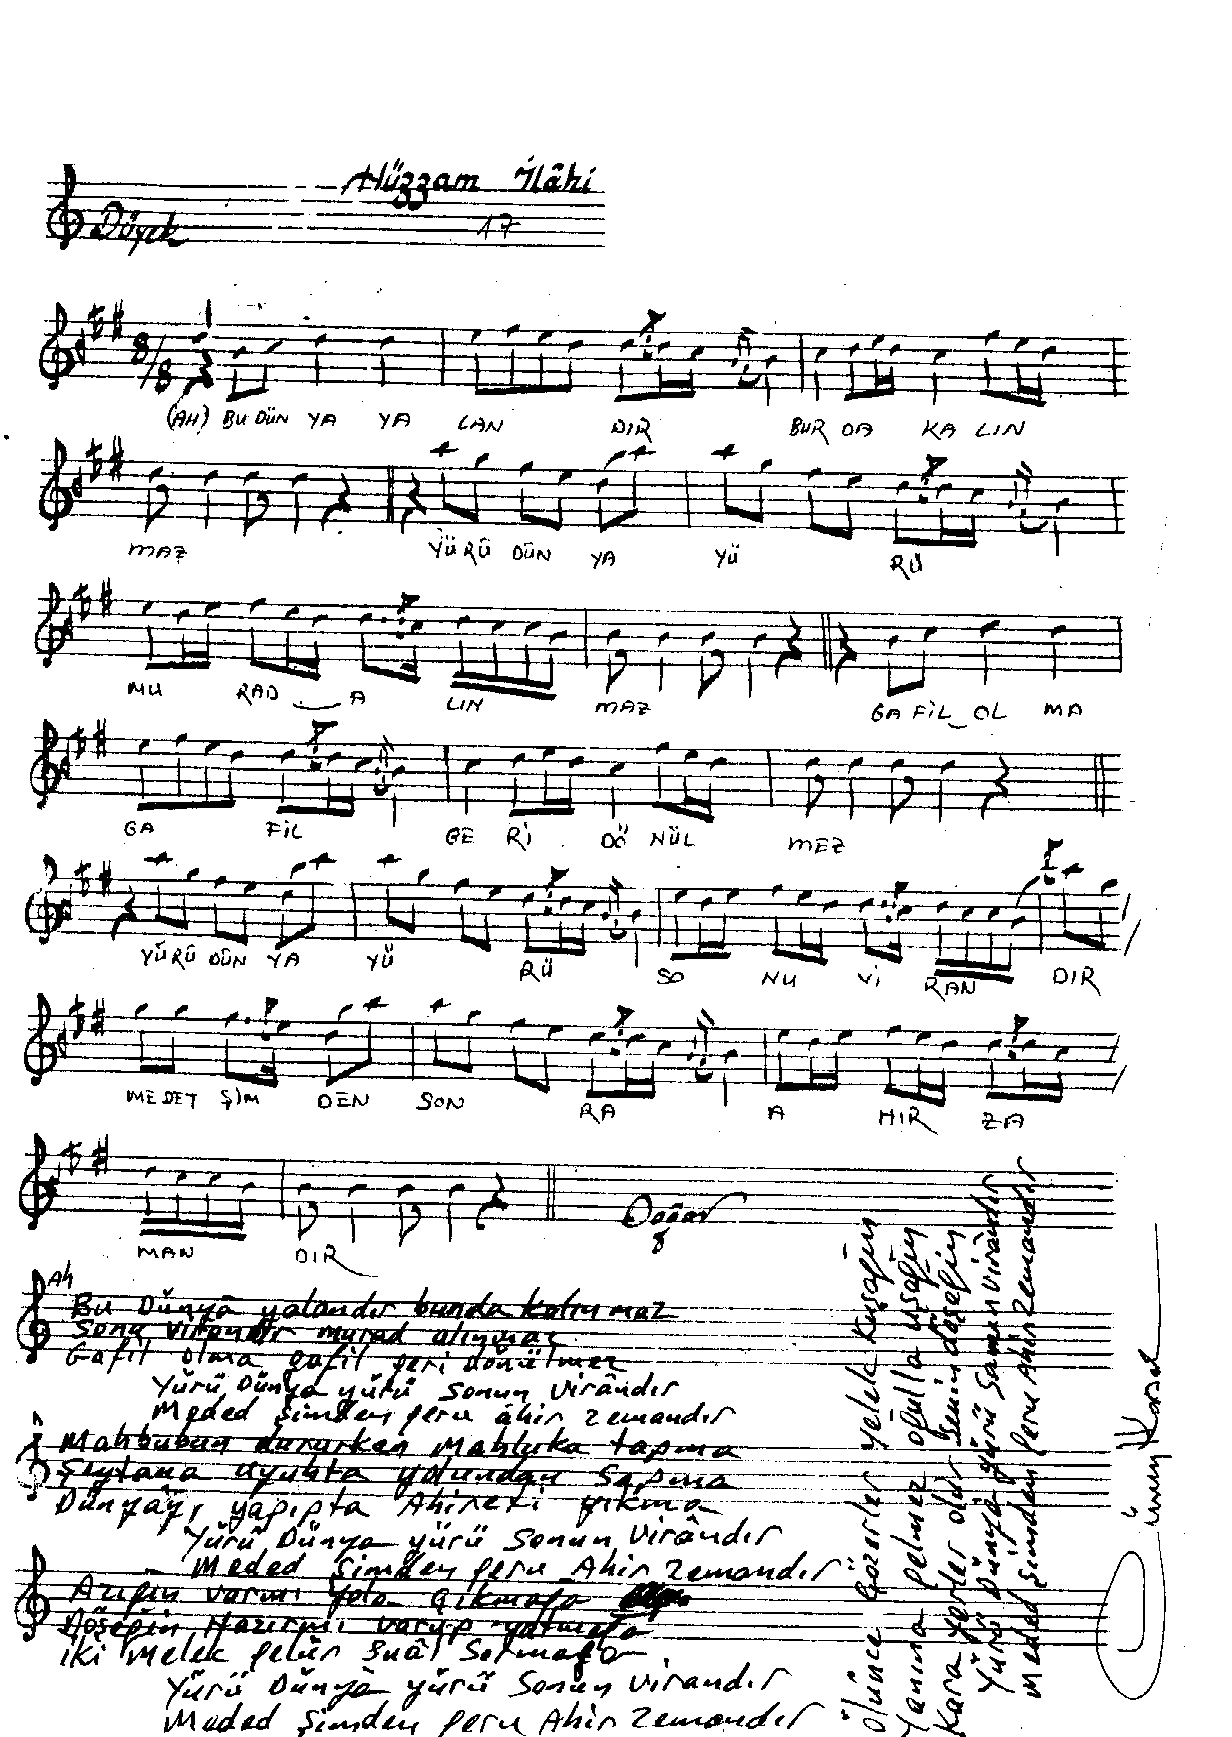 Hüzzam İlâhi
Düyek 17
8/8
(AH) BU DÜN YA YA LAN DIR BUR DA KA LIN
MAZ YÜ RÜ DÜN YA YÜ RÜ
MU RAD A LIN MAZ GA FİL OL MA
GA FİL GE Rİ DÖ NÜL MEZ
YÜ RÜ DÜN YA YÜ RÜ SO NU Vİ RAN DIR
ME DET ŞİM DEN SON RA A HIR ZA
MAN DIR
Ah
Bu Dünyâ yalandır bunda kalınmaz
Sonu virandır murad alınmaz
Gafil olma gafil geri dönülmez
Yürü Dünya yürü Sonun Virândır
Meded Şimden geru âhir zemandır
Mahbubun dururken Mahluka tapma
Şeytana uyupta yolundan Sapma
Dünyayı yapıpta Ahireti yıkma
Yürü Dünya yürü Sonun Virândır
Meded Şimden geru Ahir Zemandır
Azığın varmı Yola Çıkmağa
Döşeğin Hazırmı varup yatmağa
İki Melek gelür Suâl Sormağa
Yürü Dünyâ yürü Sonun Virandır
Meded Şimden geru Ahir Zemandır
Ölünce Çözerler Yelek Kuşağın
Yanına gelmez oğulla uşağın
Kara Yerler olur Senin döşeğin
Yürü Dünyâ yürü Sonun Virândır
Meded Şimden geru Ahir Zemandır